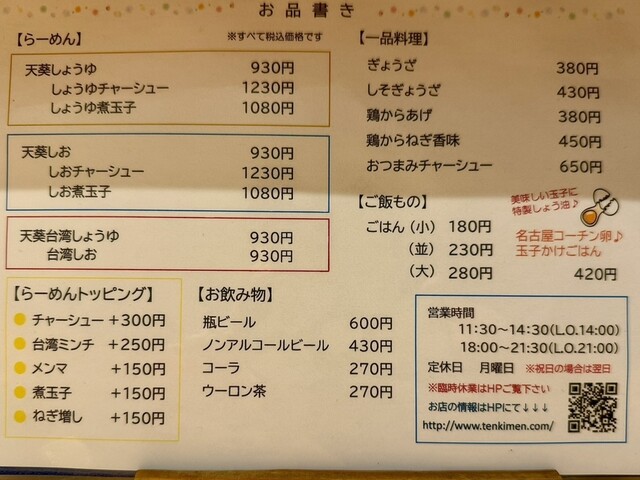 お品書き
【らーめん】 ※すべて税込価格です
天葵しょうゆ 930円
しょうゆチャーシュー 1230円
しょうゆ煮玉子 1080円
天葵しお 930円
しおチャーシュー 1230円
しお煮玉子 1080円
天葵台湾しょうゆ 930円
台湾しお 930円
【らーめんトッピング】
チャーシュー +300円
台湾ミンチ +250円
メンマ +150円
煮玉子 +150円
ねぎ増し +150円
【お飲み物】
瓶ビール 600円
ノンアルコールビール 430円
コーラ 270円
ウーロン茶 270円
【一品料理】
ぎょうざ 380円
しそぎょうざ 430円
鶏からあげ 380円
鶏からねぎ香味 450円
おつまみチャーシュー 650円
【ご飯もの】
ごはん (小) 180円
(並) 230円
(大) 280円
美味しい玉子に
特製しょう油♪
名古屋コーチン卵♪
玉子かけごはん
420円
営業時間
11:30～14:30(L.O.14:00)
18:00～21:30(L.O.21:00)
定休日 月曜日 ※祝日の場合は翌日
※臨時休業はHPご覧下さい
お店の情報はHPにて↓↓↓
http://www.tenkimen.com/